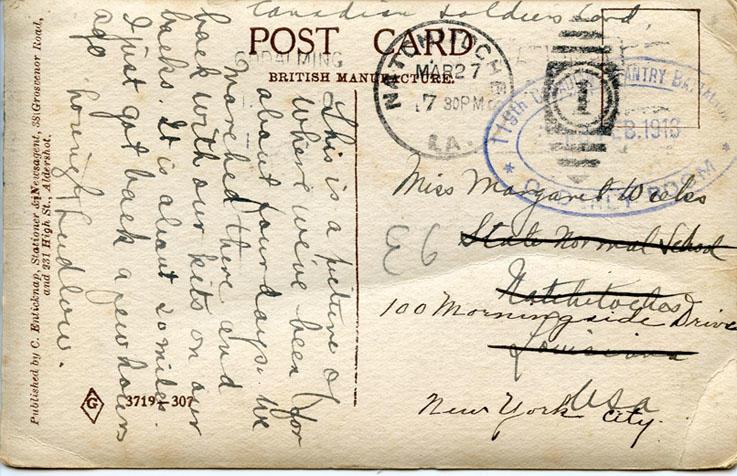 Canadian soldiers Card,
POST CARD
GODALMING
BRITISH MANUFACTURE.
NATCHITOCHES
MAR 27
7 30PM
LA.
1
119th INFANTRY
FEB. 1918
ORDERLY ROOM
This is a picture of
where we've been for
about four days. We
marched there and
back with our kits on our
backs. It is about 20 miles.
I just got back a few hours
ago
Ludlow.
Miss Margaret Weeks
State Normal School
Natchitoches
100 Morningside Drive
Louisiana
USA
New York City.
Published by C. Enticknap, Stationer & Newsagent, 38 Grosvenor Road,
and 231 High St., Aldershot.
G
3719—307